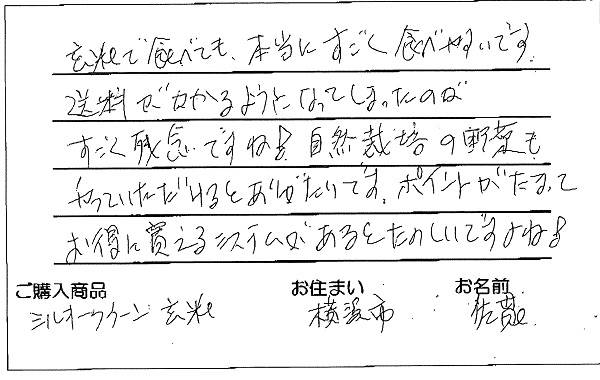 玄米で食べても、本当にすごく食べやすいです。
送料がかかるようになってしまったのが
すごく残念ですね! 自然栽培の野菜も
やっていただけるとありがたいです。ポイントがたまって
お得に買えるシステムがあるとたのしいですよね!
ご購入商品 お住まい お名前
ミルキークイーン 玄米 横浜市 佐藤